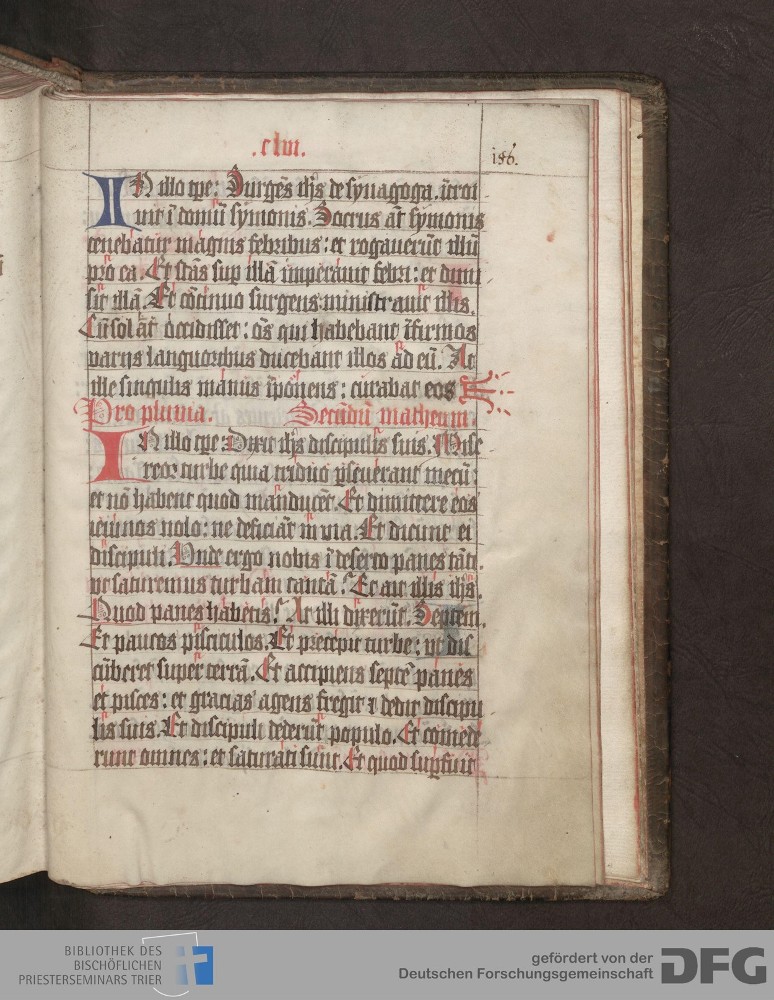 .clvi.
156.
IN illo tp̄e: Surgēs ih̄s de synagoga. ītroi
uit ī domū symonis. Socrus aūt symonis
tenebatur magnis febribus: et rogauerūt illū
pro ea. Et stās sup illā imperauit febri: et dimi
sit illā. Et cōtinuo surgens ministrauit illis.
Cū sol āt occidisset: om̄s qui habebant īfirmos
varijs languoribus ducebant illos ad eū. At
ille singulis manus īponens: curabat eos
Pro pluuia. Secūdū matheum.
IN illo tp̄e: Dixit ih̄s discipulis suis. Mise
reor turbe quia triduo ꝑseuerant mecū:
et nō habent quod manducēt. Et dimittere eos
ieiunos nolo: ne deficiāt in via. Et dicunt ei
discipuli. Unde ergo nobis ī deserto panes tāti.
vt saturemus turbam tantā? Et ait illis ih̄s.
Quod panes habetis? At illi dixerūt. Septem.
Et paucos pisciculos. Et precepit turbe: vt dis
cūberet super terrā. Et accipiens septē panes
et pisces: et gracias agens fregit ⁊ dedit discipu
lis suis. Et discipuli dederūt populo. Et comede
runt omnes: et saturati sunt. Et quod supfuit
BIBLIOTHEK DES
BISCHÖFLICHEN
PRIESTERSEMINARS TRIER
gefördert von der
Deutschen Forschungsgemeinschaft DFG